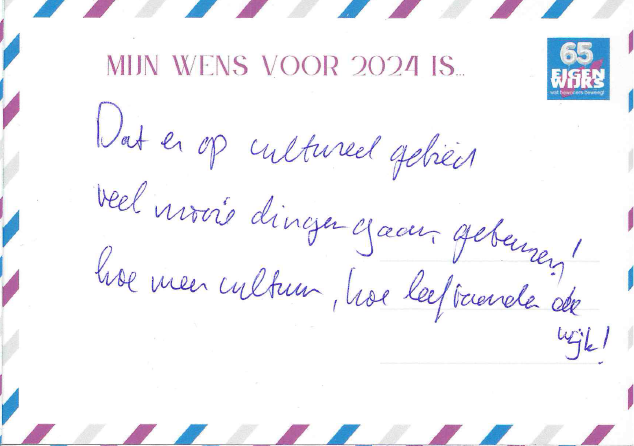 MIJN WENS VOOR 2024 IS...
65
EIGEN
WIJKS
Dat er op cultureel gebied
veel mooie dingen gaan gebeuren!
hoe meer cultuur, hoe leefbaarder de
wijk!